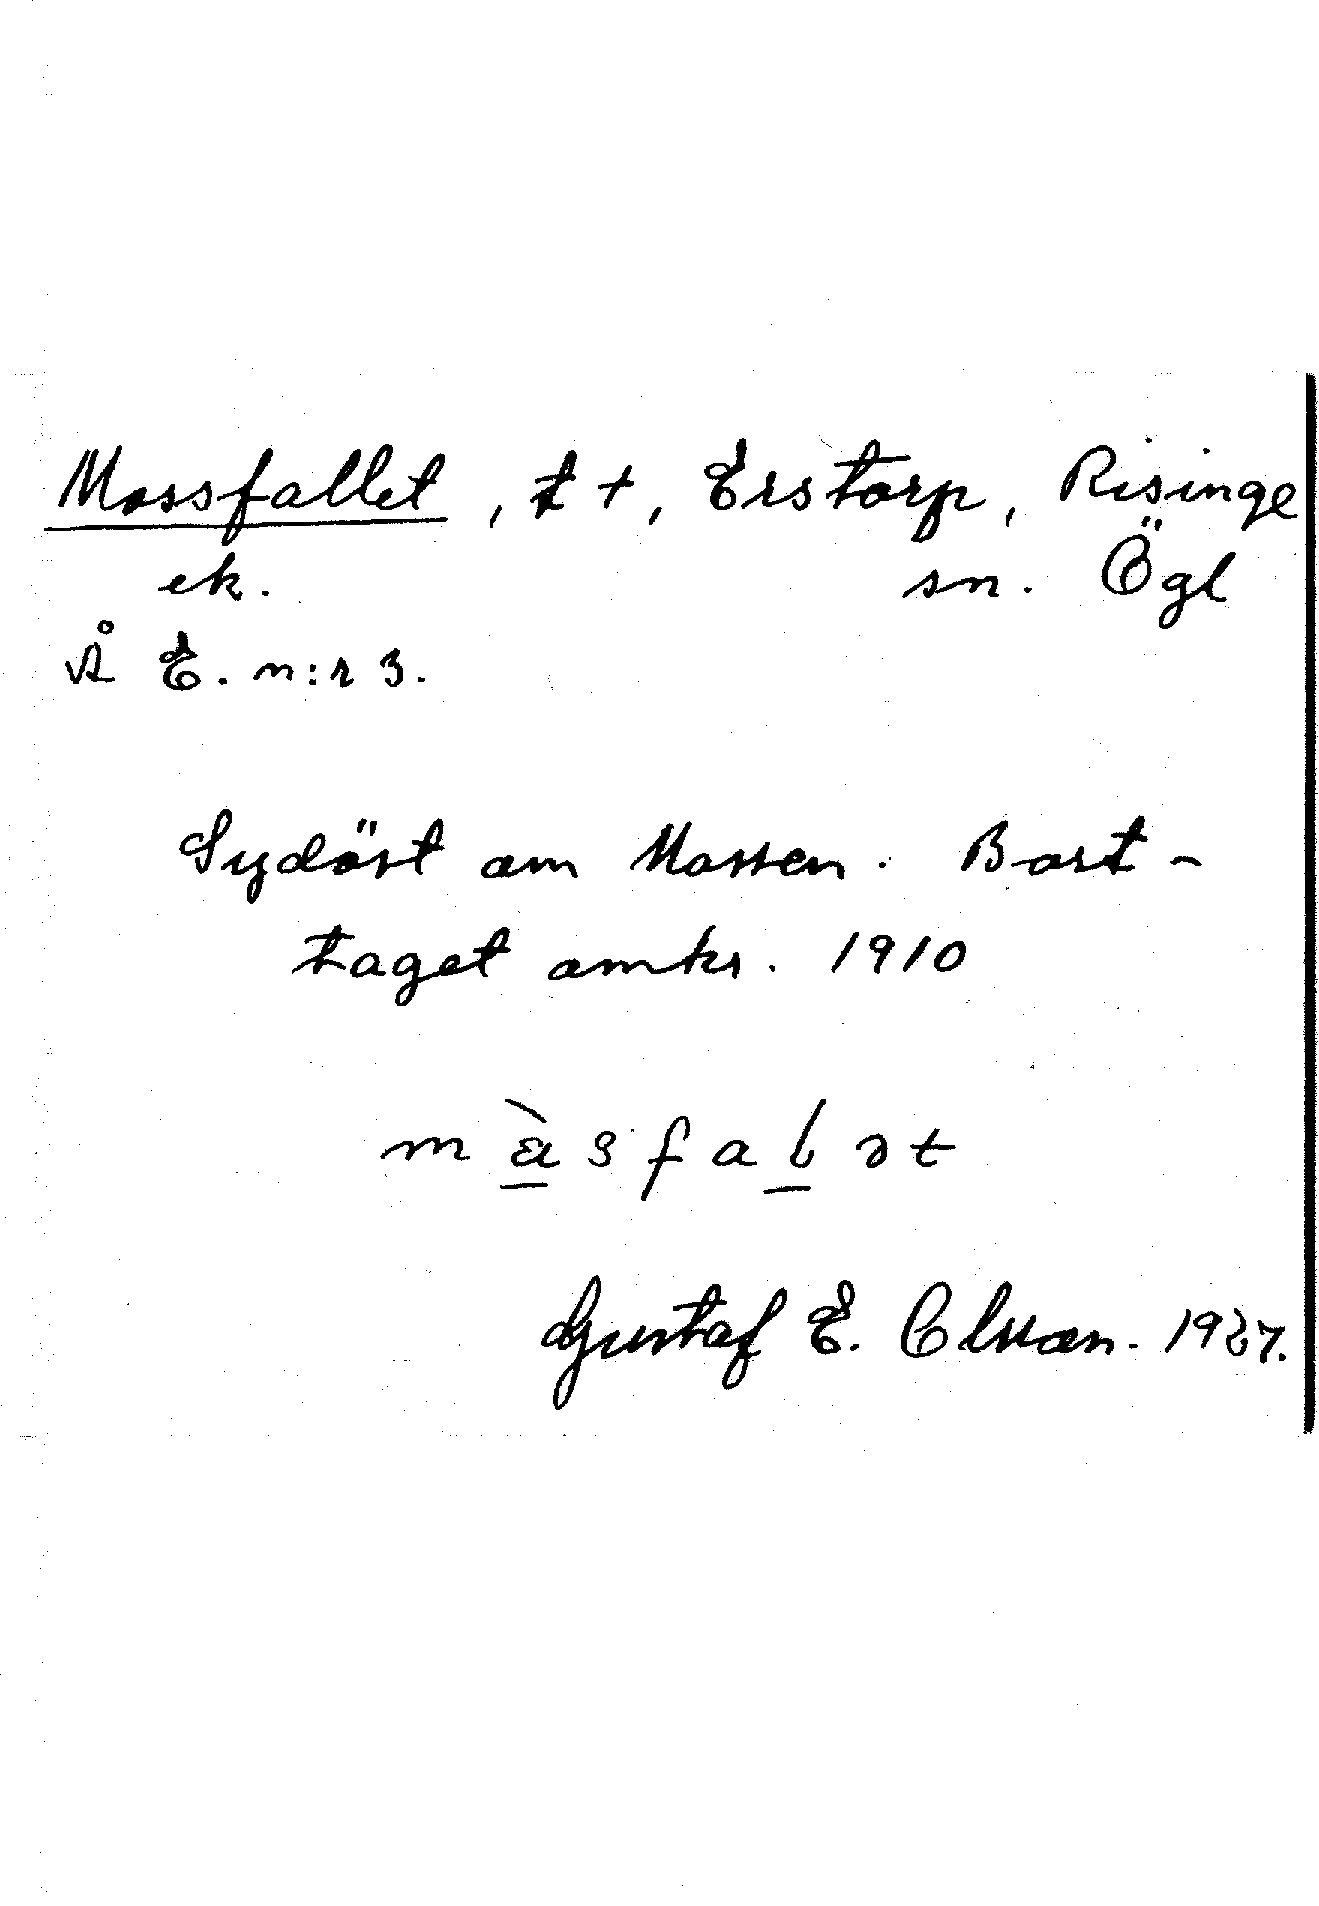 Mossfallet, t +, Erstorp, Risinge
ek. sn. Ögl
Å E. n:r 3.
Sydöst om Mossen. Bort-
taget omkr. 1910
Gustaf E. Olsson. 1927.